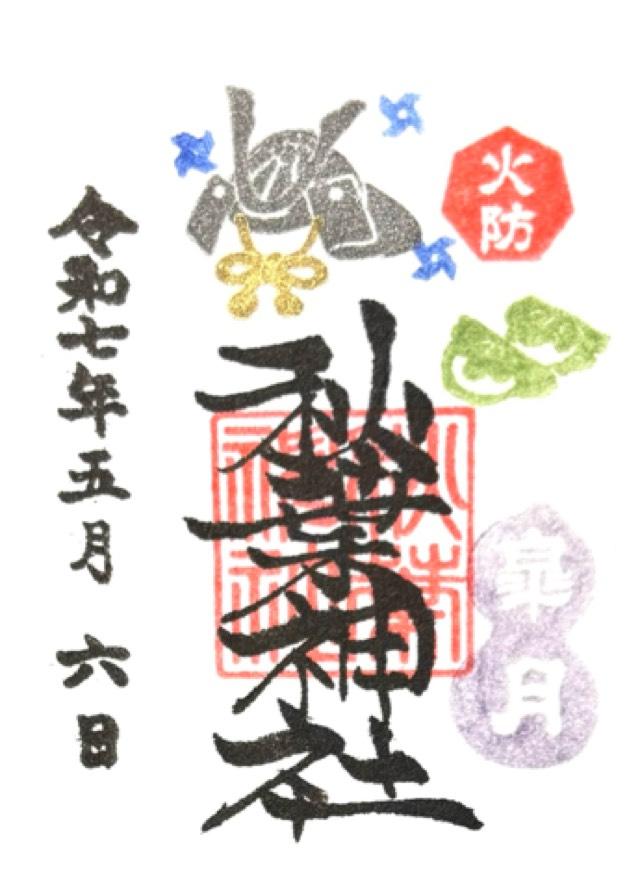 火防
皐月
秋葉神社
令和七年五月六日